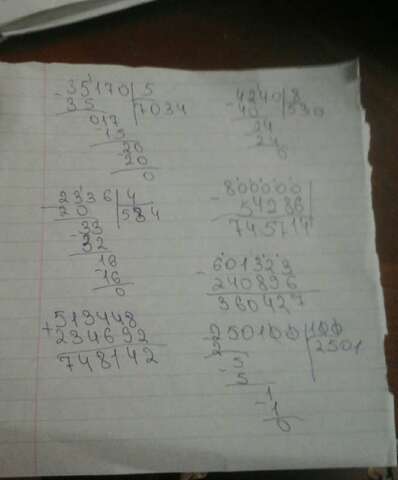 -35170 5
35 7034
017
-15
20
-20
0
-4240 8
40 530
24
24
0
-2336 4
20 584
-33
32
16
-16
0
-800000
54286
745714
-601323
240896
360427
+513448
234692
748142
250100 100
2 2501
-5
5
-1
1
0